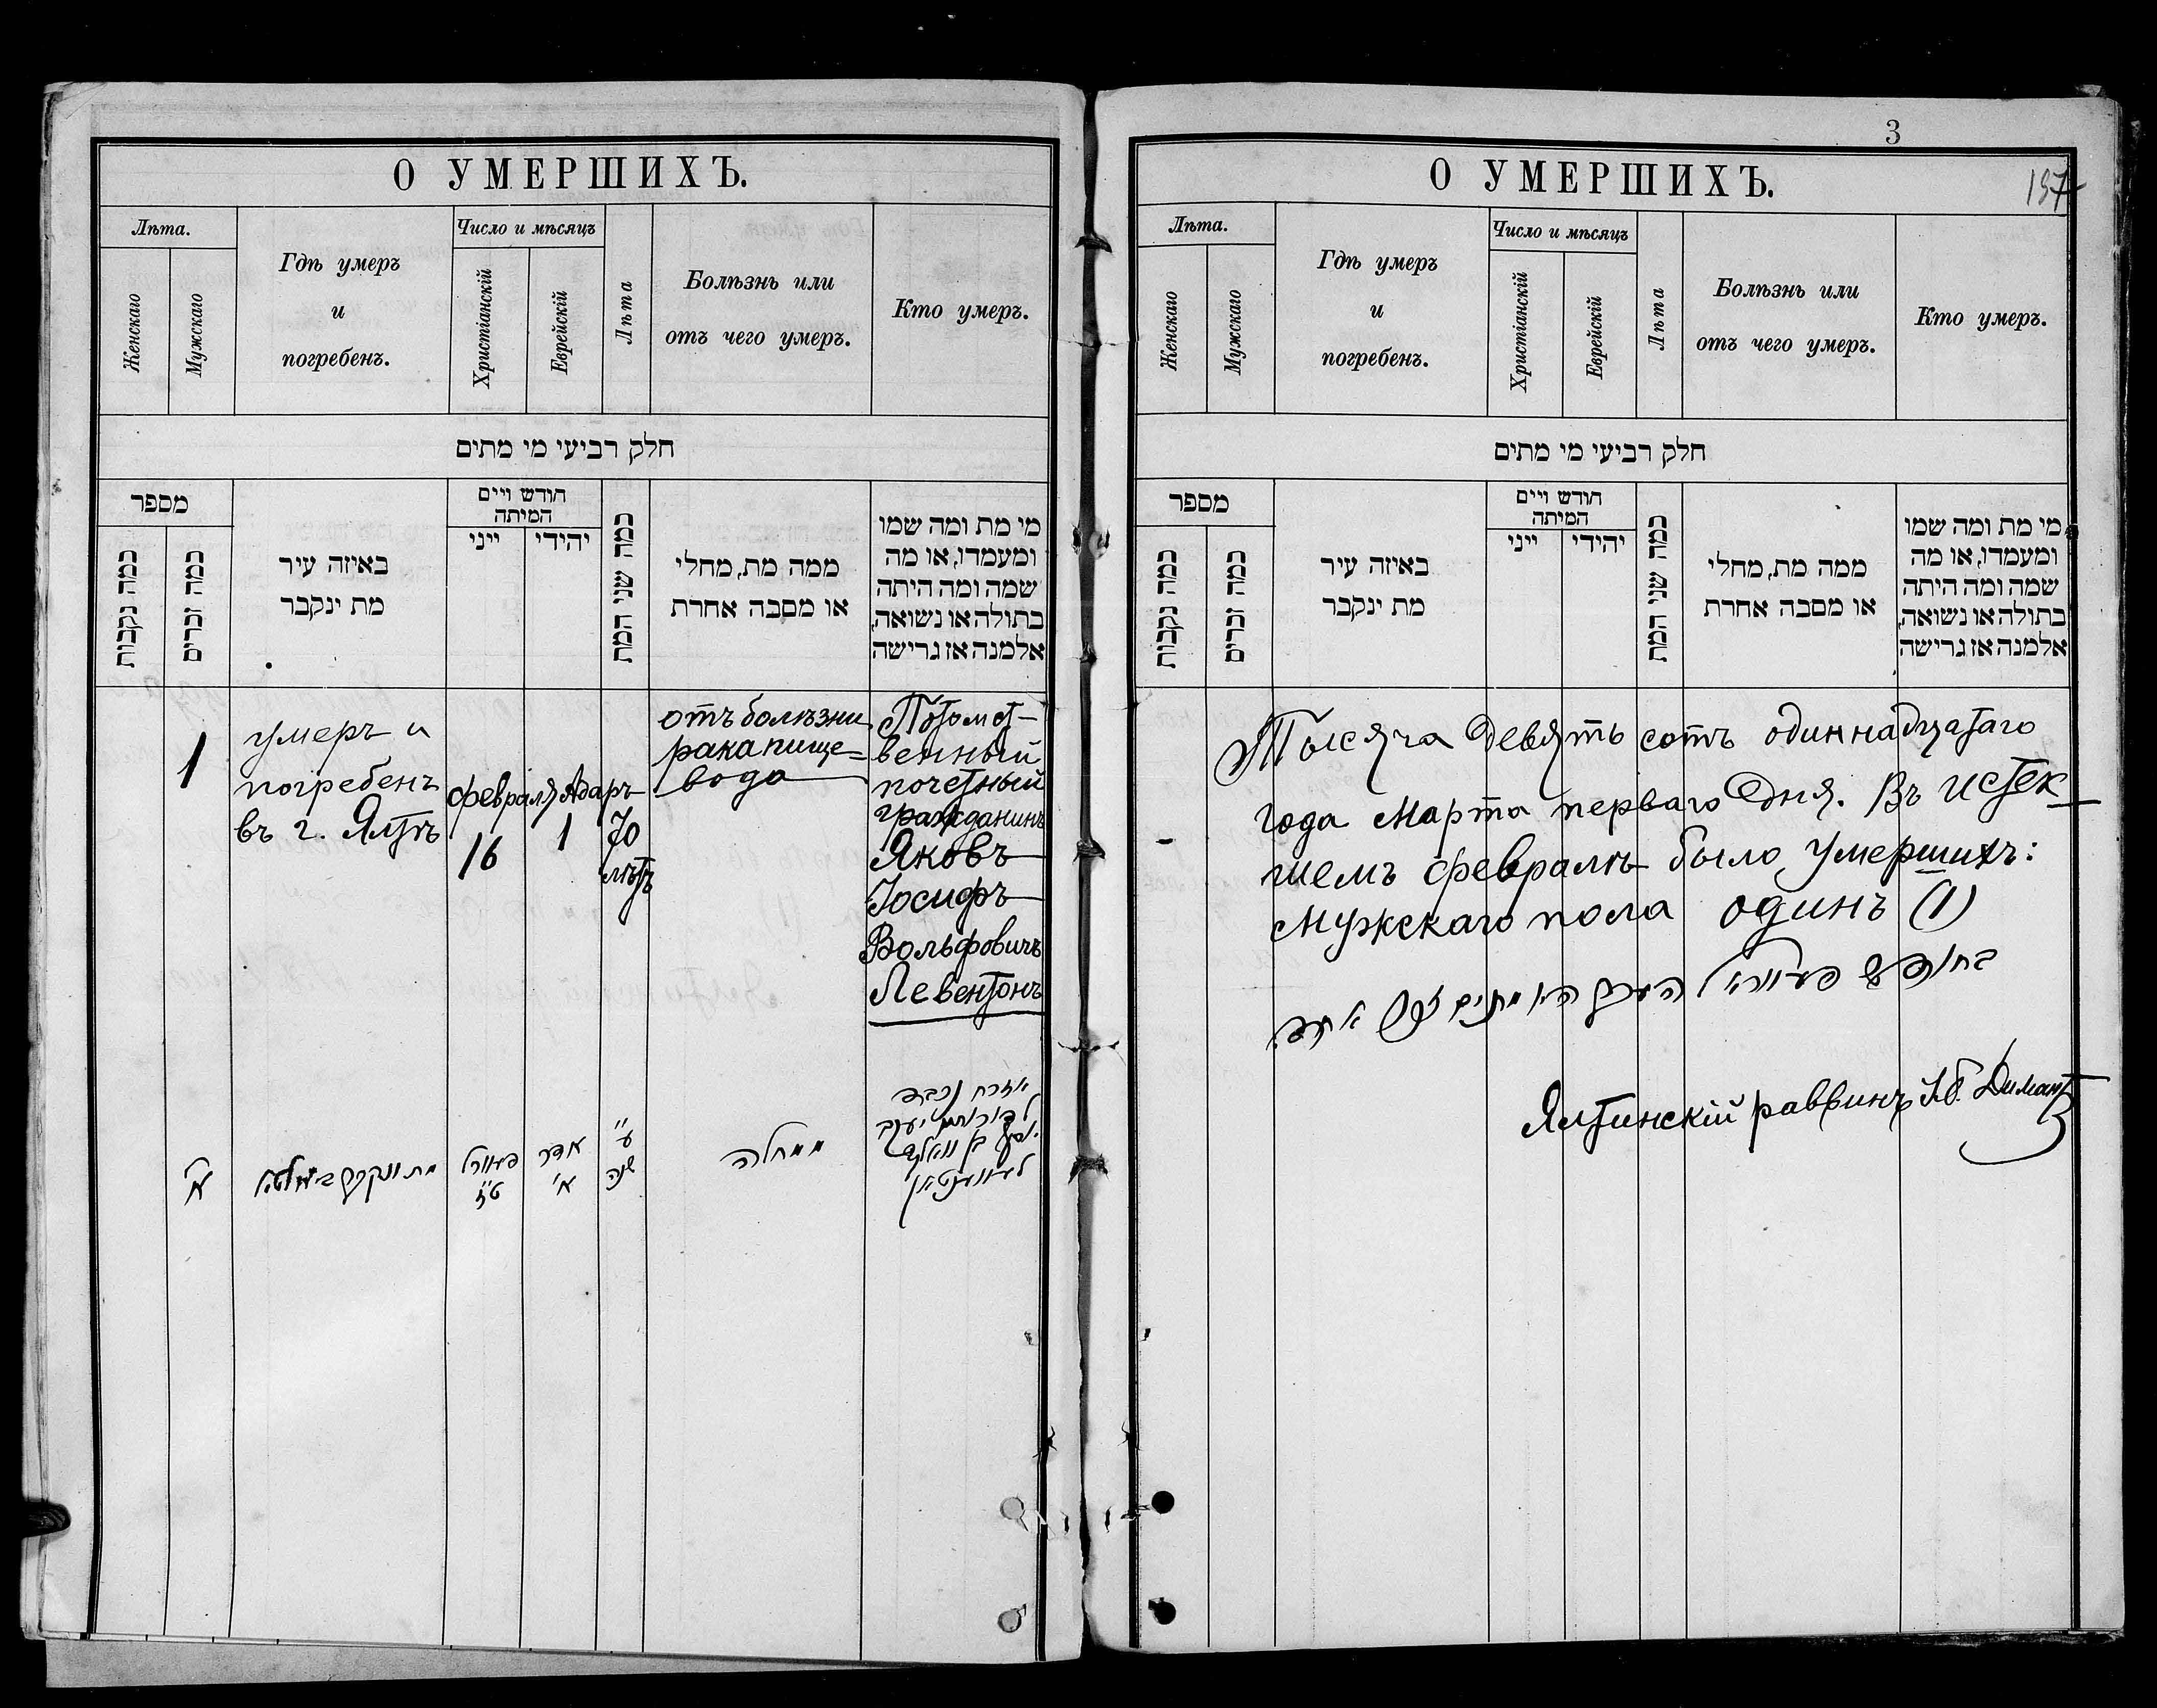 О УМЕРШИХЪ.
Лѣта.
Женскаго
Мужскаго
Гдѣ умеръ
и
погребенъ.
Число и мѣсяцъ
Христіанскій
Еврейскій
Лѣта
Болѣзнь или
отъ чего умеръ.
Кто умеръ.
חלק רביעי מי מתים
מספר
כמה נקבות
כמה זכרים
באיזה עיר
מת ינקבר
חודש ויים
המיתה
ייני
יהודי
כמה שני המת
ממה מת, מחלי
או מסבה אחרת
מי מת ומה שמו
ומעמדו, או מה
שמה ומה היתה
בתולה או נשואה,
אלמנה אז גרישה
1
умеръ и
погребенъ
въ г. Ялтѣ
февраля
16
Адаръ
1
70
лѣтъ
отъ болѣзни
рака пище=
вода
Потомст-
венный
почетный
гражданинъ
Яковъ
Іосифъ
Вольфовичъ
Левентонъ
א'
מת ונקבר ביאלטא
פעוורל
ט"ז
אדר
א'
ע"
שנה
ממחלה
אזרח נכבד
לדורותיו יעקב
יוסף בן וואלף
לעווענטאן
3
О УМЕРШИХЪ.
197
Лѣта.
Женскаго
Мужскаго
Гдѣ умеръ
и
погребенъ.
Число и мѣсяцъ
Христіанскій
Еврейскій
Лѣта
Болѣзнь или
отъ чего умеръ.
Кто умеръ.
חלק רביעי מי מתים
מספר
כמה נקבות
כמה זכרים
באיזה עיר
מת ינקבר
חודש ויים
המיתה
ייני
יהודי
כמה שני המת
ממה מת, מחלי
או מסבה אחרת
מי מת ומה שמו
ומעמדו, או מה
שמה ומה היתה
בתולה או נשואה,
אלמנה אז גרישה
Тысяча девять сотъ одиннадцатаго
года Марта перваго дня. Въ истек-
шемъ февралѣ было умершихъ:
мужскаго пола одинъ (1)
בחודש פעווראל העבר היו מתים זכר אחד.
Ялтинскій раввинъ Іб. Димантъ